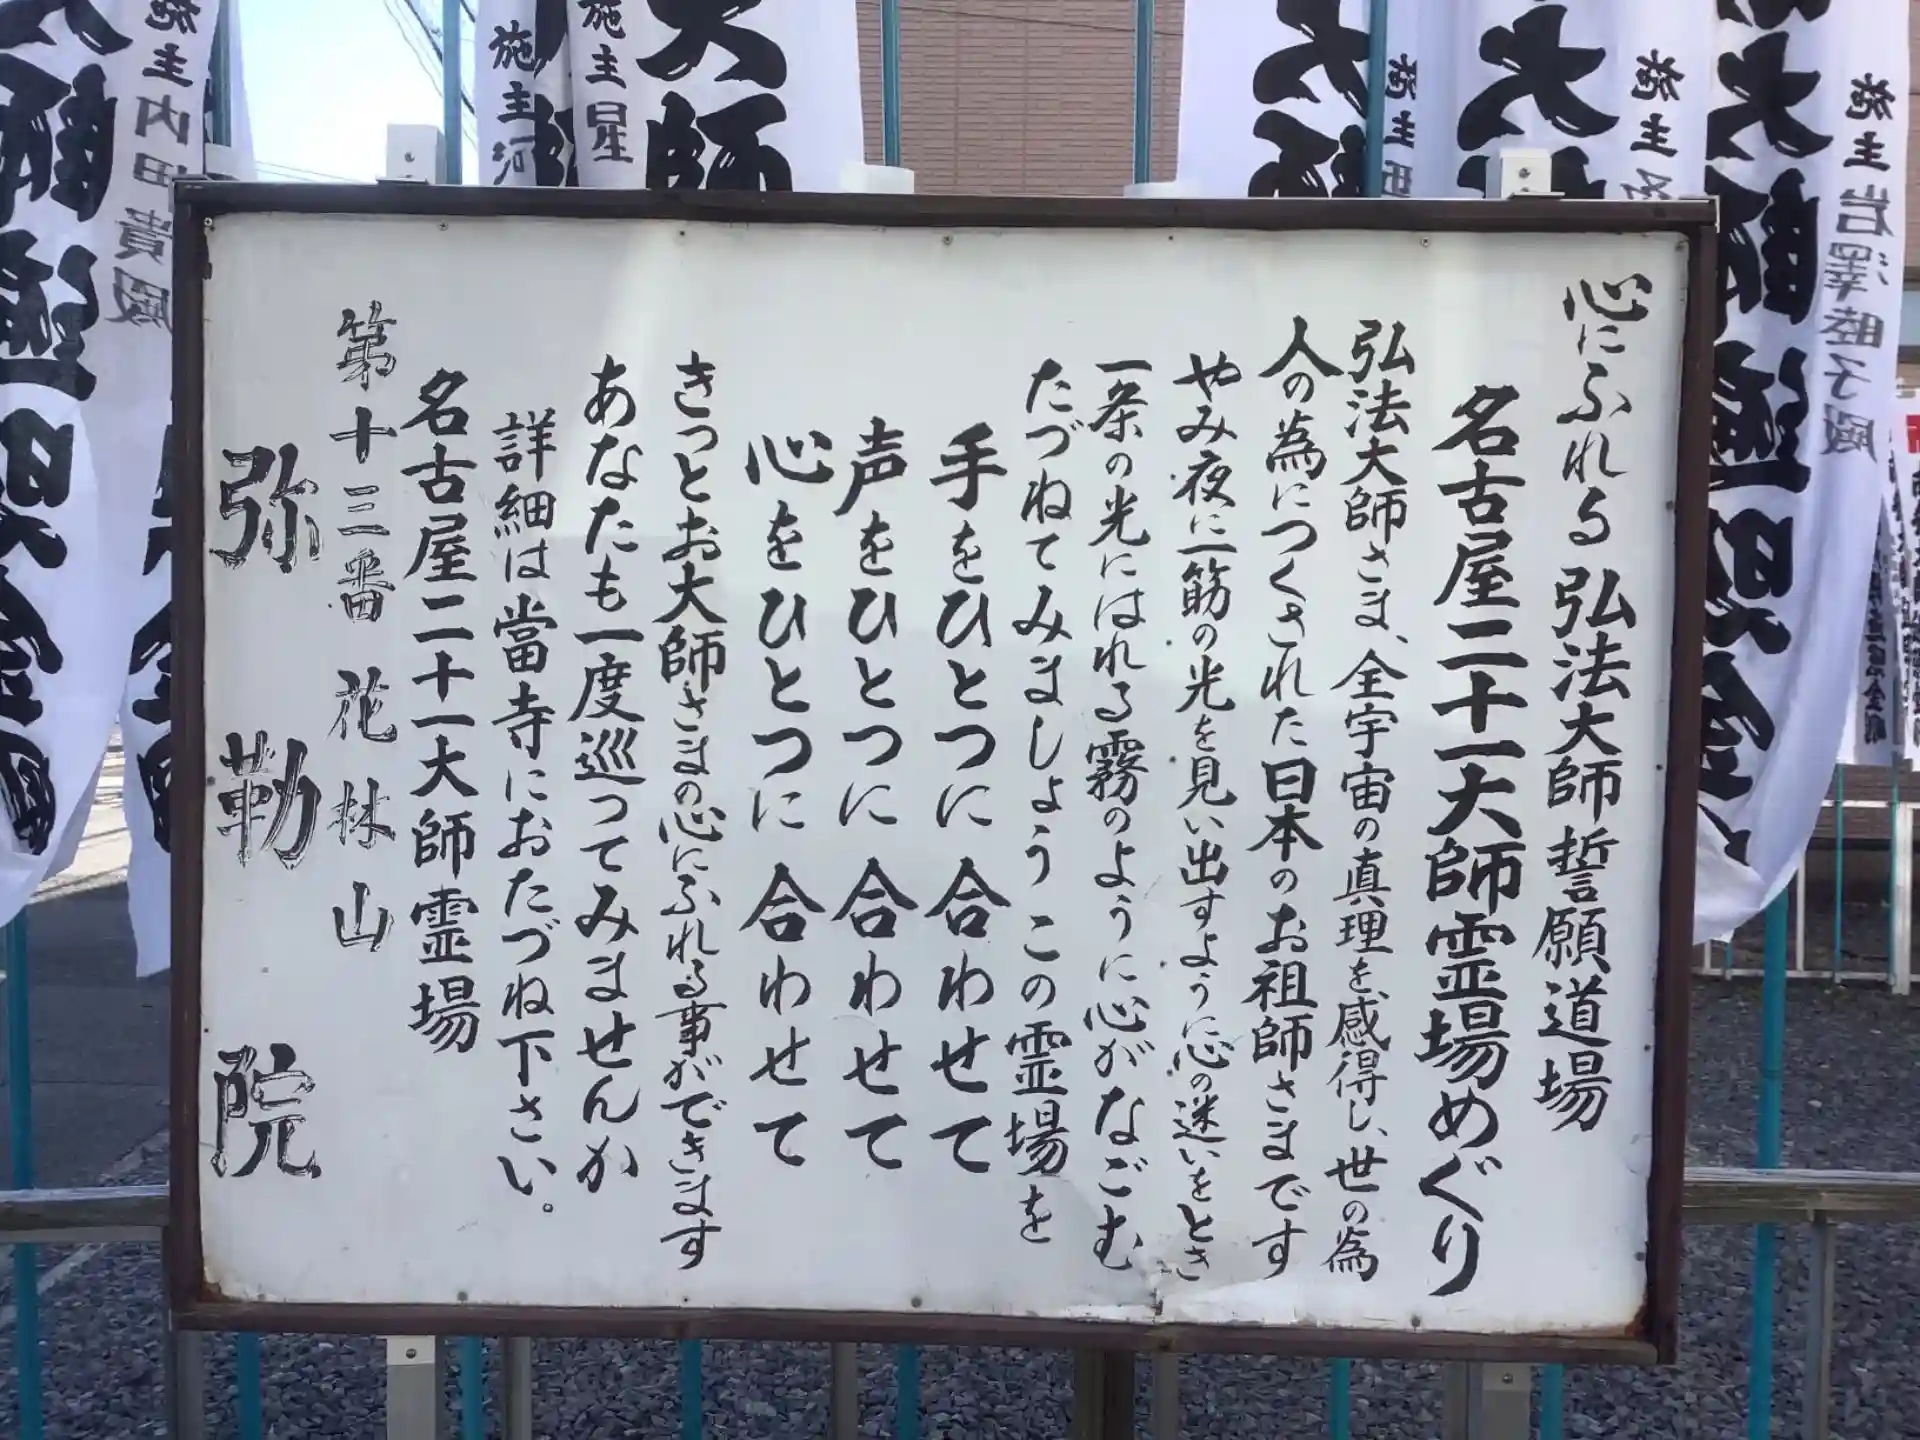 心にふれる 弘法大師誓願道場
名古屋二十一大師霊場めぐり
弘法大師さま、全宇宙の真理を感得し、世の為
人の為につくされた日本のお祖師さまです
やみ夜に一筋の光を見い出すように心の迷いをとき
一条の光にはれる霧のように心がなごむ
たづねてみましょうこの霊場を
手をひとつに合わせて
声をひとつに合わせて
心をひとつに合わせて
きっとお大師さまの心にふれる事ができます
あなたも一度巡ってみませんか
詳細は當寺におたづね下さい。
名古屋二十一大師霊場
第十三番 花林山
弥勒院
施主岩澤睦子殿
大師遍照金剛
施主
大師
施主
大師
大師
施主星
施主河
施主内田貴殿
大師遍照金剛